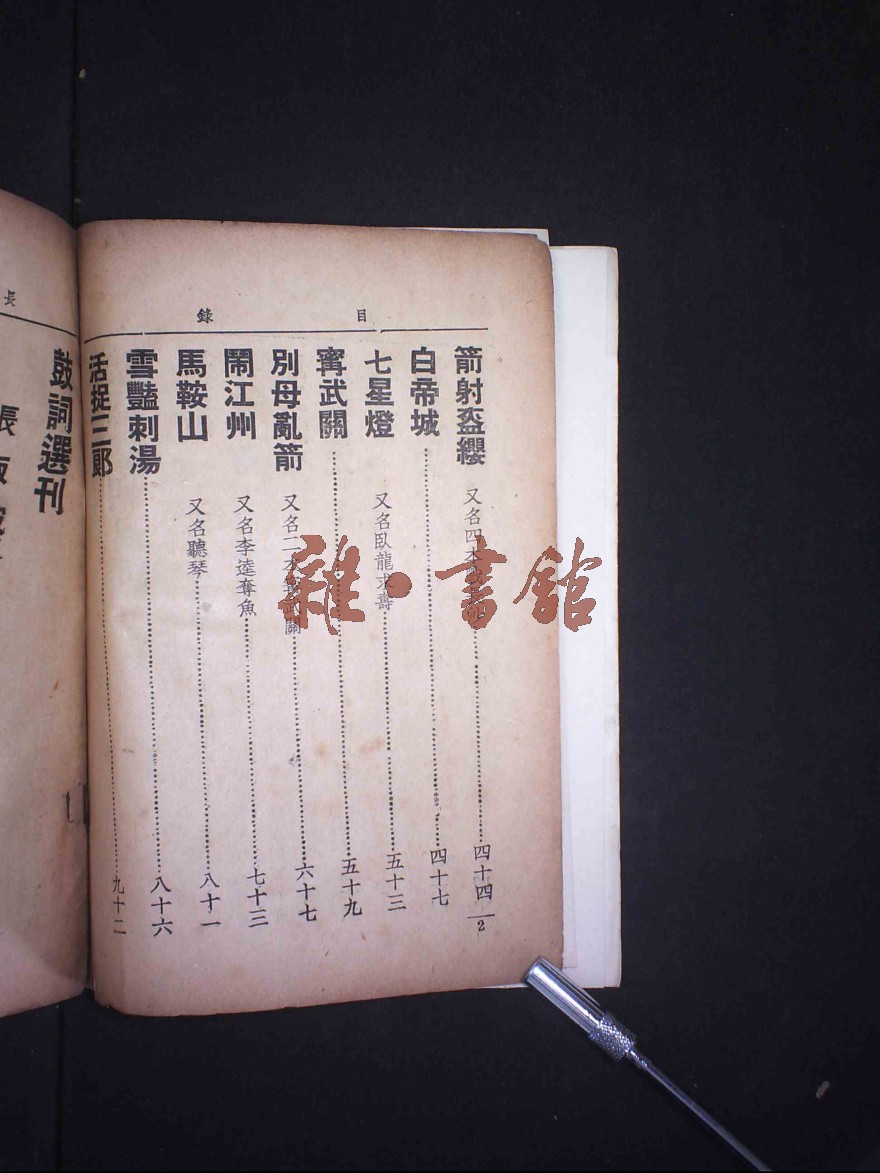 目錄
箭射盔纓 又名四本戰長沙 四十四
2
白帝城 四十七
七星燈 又名臥龍求壽 五十三
寗武關 五十九
別母亂箭 又名二本寗武關 六十七
鬧江州 又名李逵奪魚 七十三
馬鞍山 又名聽琴 八十一
雪豔刺湯 八十六
活捉三郎 九十二
長
鼓詞選刊
長
雜·書館